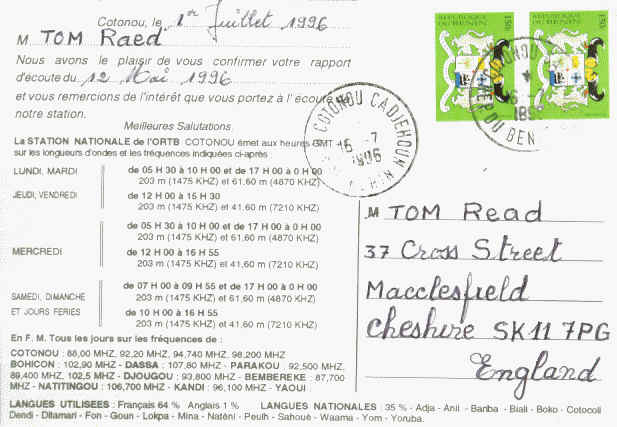 REPUBLIQUE DU BENIN
REPUBLIQUE DU BENIN
150f
150f
Cotonou, le 1er Juillet 1996
M TOM Raed
Nous avons le plaisir de vous confirmer votre rapport
d'écoute du 12 Mai 1996
et vous remercions de l'intérêt que vous portez à l'écoute de
notre station.
Meilleures Salutations
COTONOU CADJEHOUN
16-7
1896
BENIN
COTONOU
16-7
1896
DU BENIN
La STATION NATIONALE de l'ORTB COTONOU émet aux heures GMT
sur les longueurs d'ondes et les fréquences indiquées ci-après
LUNDI, MARDI
de 05 H 30 à 10 H 00 et de 17 H 00 à 0 H 00
203 m (1475 KHZ) et 61,60 m (4870 KHZ)
JEUDI, VENDREDI
de 12 H 00 à 15 H 30
203 m (1475 KHZ) et 41,60 m (7210 KHZ)
de 05 H 30 à 10 H 00 et de 17 H 00 à 0 H 00
203 m (1475 KHZ) et 61,60 m (4870 KHZ)
MERCREDI
de 12 H 00 à 16 H 55
203 m (1475 KHZ) et 41,60 m (7210 KHZ)
de 07 H 00 à 09 H 55 et de 17 H 00 à 0 H 00
SAMEDI, DIMANCHE
203 m (1475 KHZ) et 61,60 m (4870 KHZ)
ET JOURS FERIES
de 10 H 00 à 16 H 55
203 m (1475 KHZ) et 41,60 m (7210 KHZ)
En F. M. Tous les jours sur les fréquences de :
COTONOU : 88,00 MHZ, 92,20 MHZ, 94,740 MHZ, 98,200 MHZ
BOHICON : 102,90 MHZ - DASSA : 107,80 MHZ - PARAKOU : 92,500 MHZ,
89,400 MHZ, 102,5 MHZ - DJOUGOU : 93,800 MHZ - BEMBEREKE : 87,700
MHZ - NATITINGOU : 106,700 MHZ - KANDI : 96,100 MHZ - YAOUI
LANGUES UTILISEES : Français 64 % Anglais 1 % LANGUES NATIONALES : 35 % - Adja - Anii - Bariba - Biali - Boko - Cotocoli
Dendi - Ditamari - Fon - Goun - Lokpa - Mina - Naténi - Peulh - Sahouè - Waama - Yom - Yoruba.
M TOM Read
37 Cross Street
Macclesfield
Cheshire SK11 7PG
England